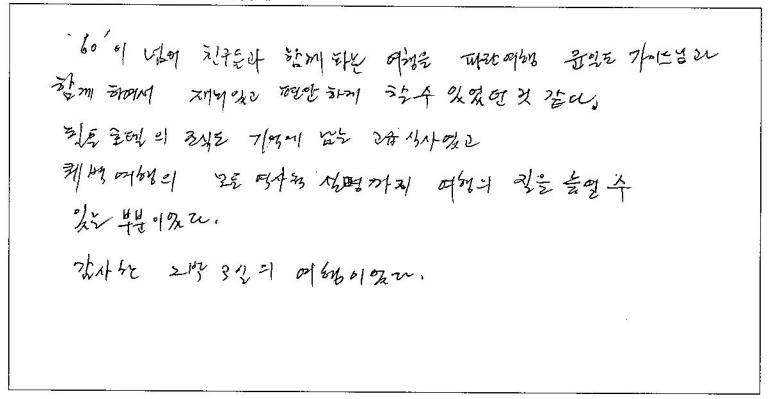 '60'이 넘어 친구들과 함께 하는 여행을 파란여행 윤익도 가이드님과
함께 하여서 재미있고 편안하게 할 수 있었던 것 같다.
힐튼 호텔의 조식도 기억에 남는 고급식사였고
퀘벡여행의 모로 역사적 설명까지 여행의 질을 높일 수
있는 부분이었다.
감사한 2박 3일의 여행이었다.